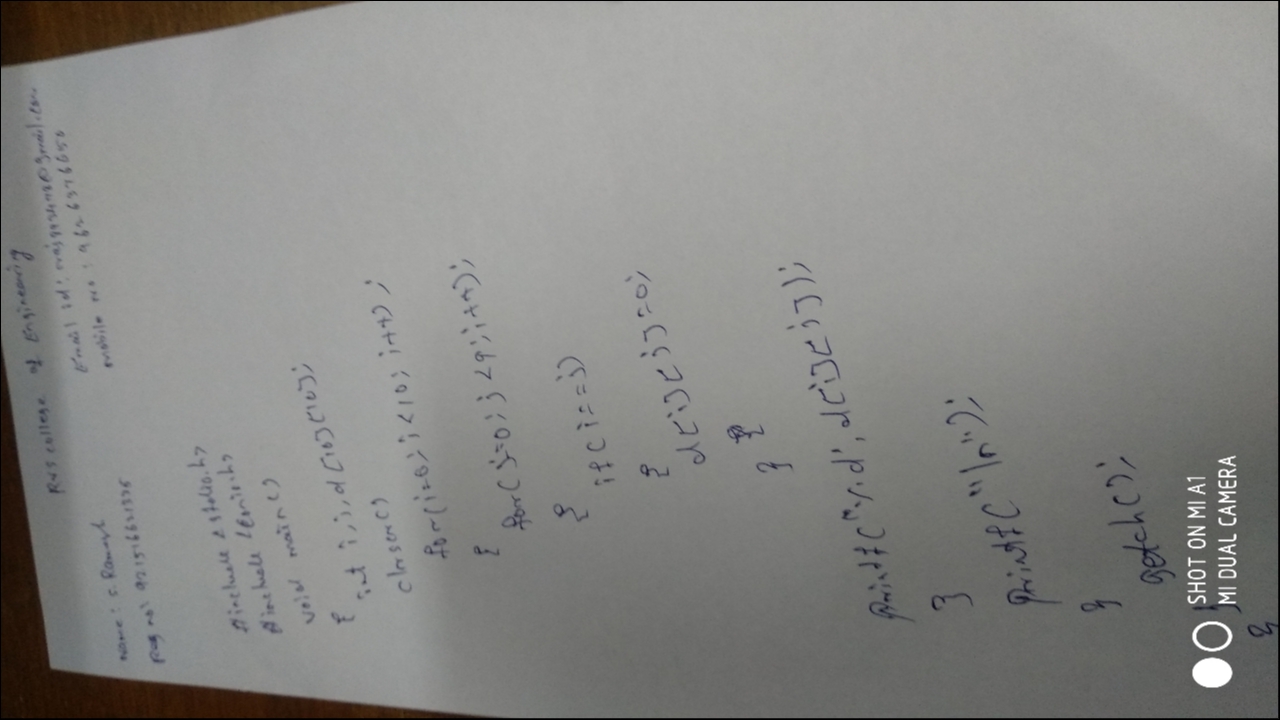 RVS college of Engineering
Name: S. Ramesh
Email id:
Reg no:
mobile no:
#include <stdio.h>
#include <conio.h>
void main()
{ int i,j,d[10][10];
clrscr()
for(i=0;i<10;i++);
{ for(j=0;j<9;j++);
{ if(i==j)
{ d[i][j]=0;
}
printf("%d",d[i][j]);
}
printf("\n");
}
getch();
}
SHOT ON MI A1
MI DUAL CAMERA